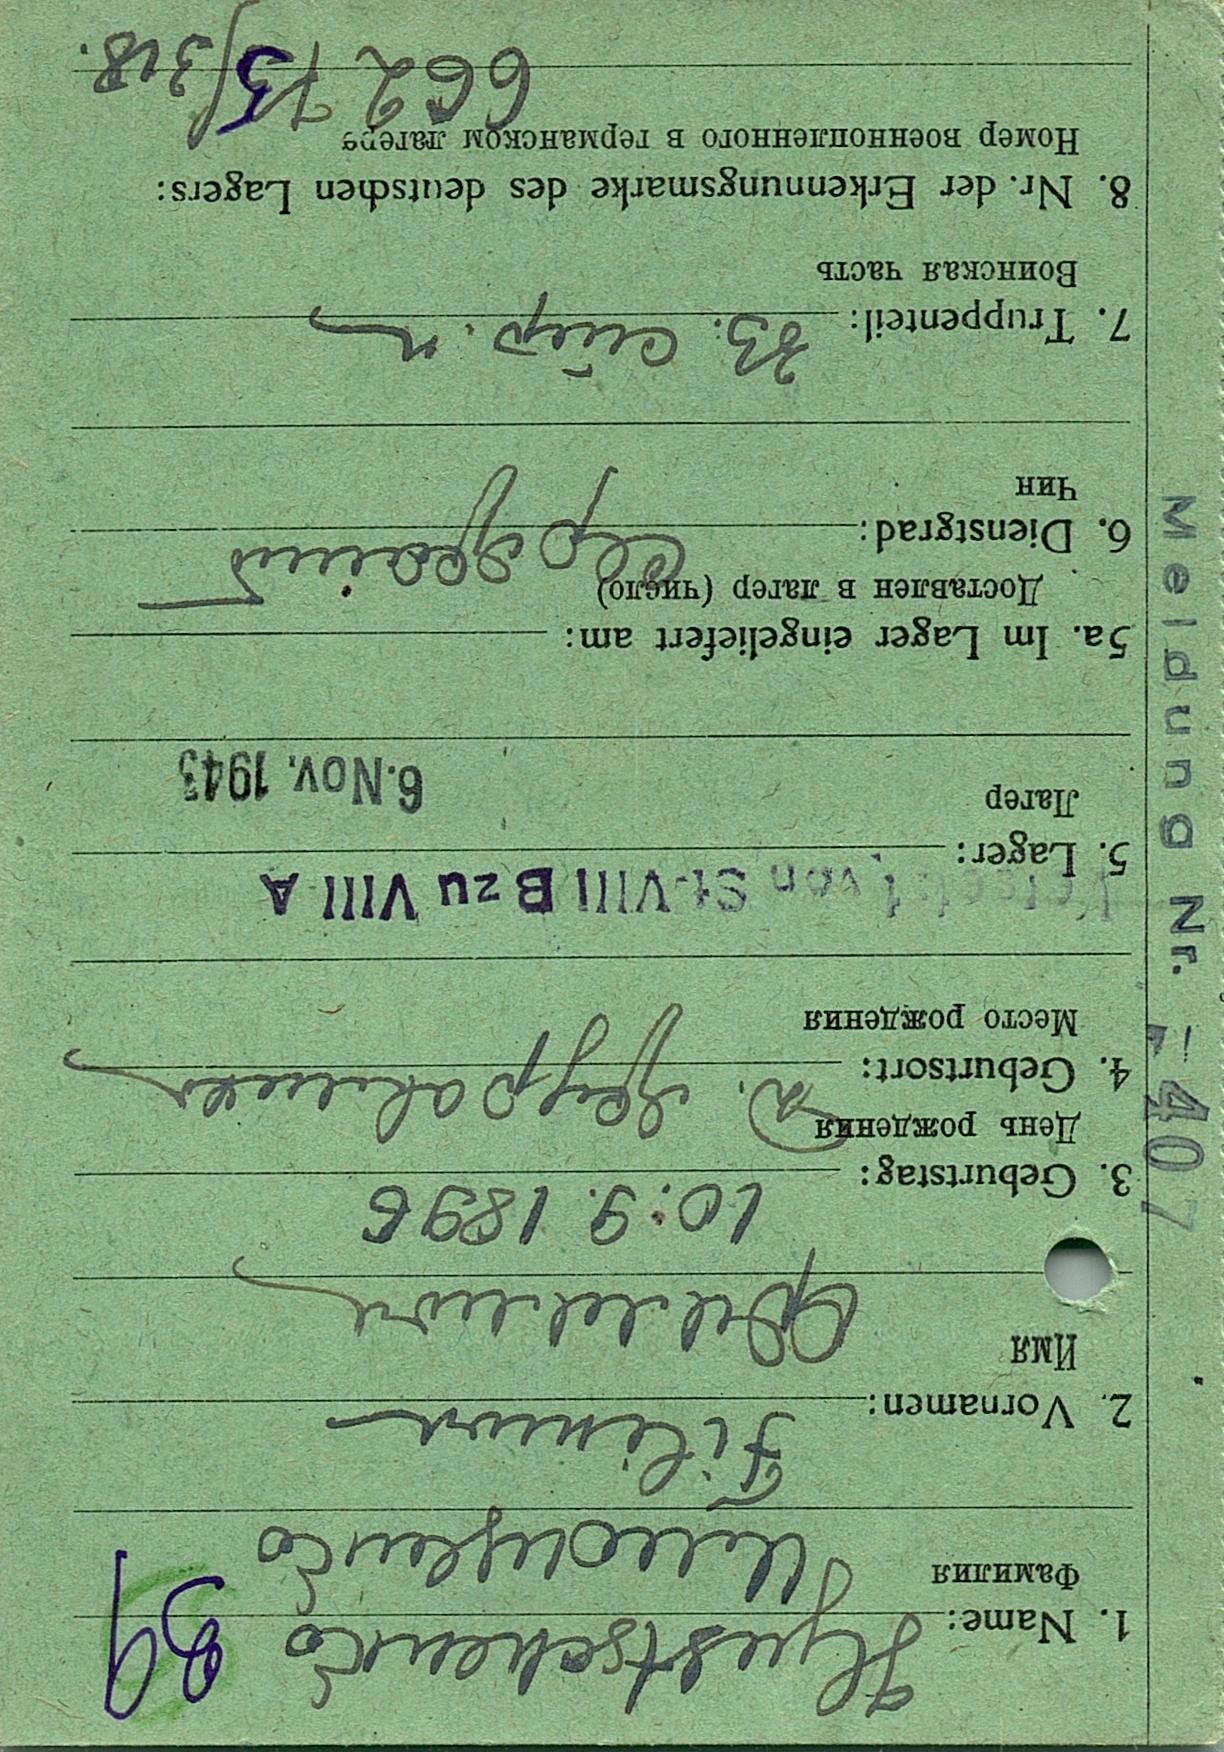 39
1. Name:
Фамилия
2. Vornamen: Filimon
Имя
Филимон
10.9.1896
3. Geburtstag:
День рождения
4. Geburtsort:
Место рождения
Versetzt von St. VIII B zu VIII A
5. Lager:
Лагер
6. Nov. 1943
5a. Im Lager eingeliefert am:
Доставлен в лагер (число)
Сержант
6. Dienstgrad:
Чин
33. стр. п
7. Truppenteil:
Воинская часть
8. Nr. der Erkennungsmarke des deutschen Lagers:
Номер военнопленного в германском лагере
66275/318.
Meldung Nr. 407